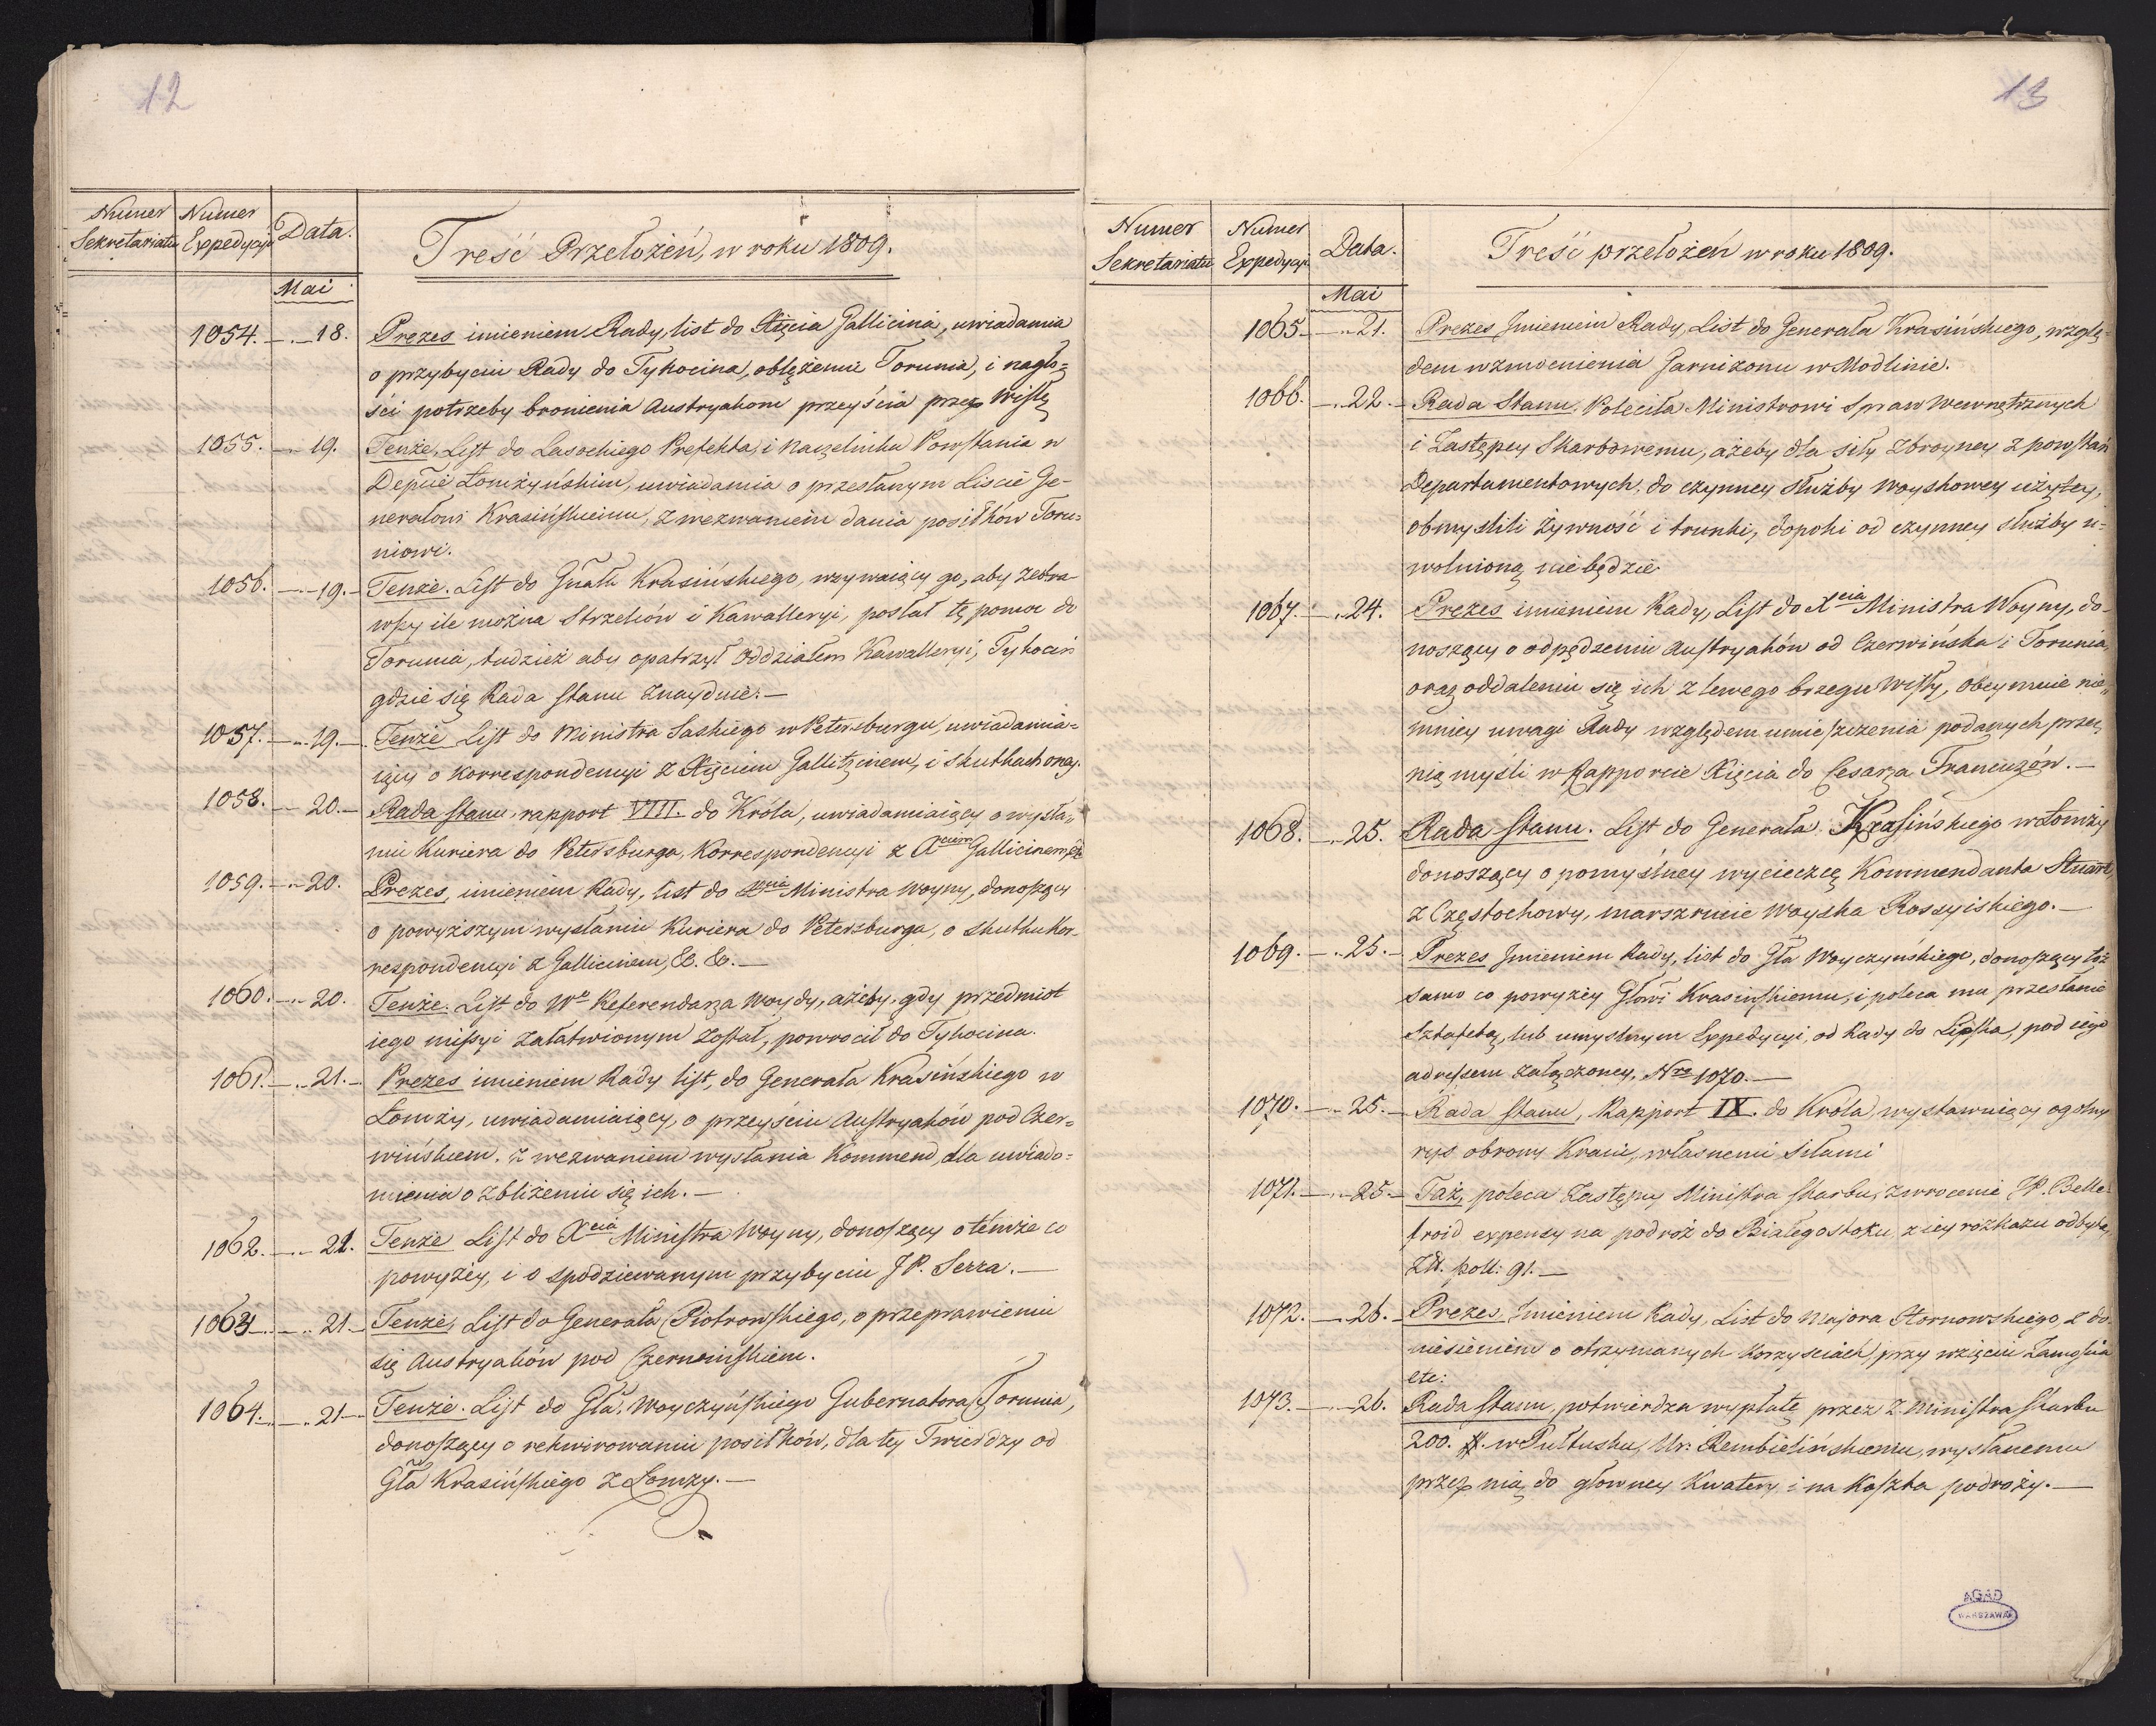 12
Numer Sekretariatu
Numer Expedycyi
Data.
Treść Przełożeń, w roku 1809.
Mai
1054. — 18. Prezes imieniem Rady, list do Xięcia Gallicina, uwiadamia
o przybyciu Rady do Tykocina, oblężeniu Torunia, i nagło=
ści potrzeby bronienia Austryakom przeyścia przez Wisłę
1055. — 19. Tenże, List do Lasockiego Prefekta, i Naczelnika Powstania w
Depcie Łomżyńskim, uwiadamia o przesłanym Liście Ge-
nerałowi Krasińskiemu, z wezwaniem dania posiłków Toru=
niowi.
1056. — 19. — Tenże. List do Gnała Krasińskiego, wzywaiący go, aby zebra-
wszy ile można Strzelców i Kawalleryi, posłał tę pomoc do
Torunia, tudzież aby opatrzył Oddziałem Kawalleryi, Tykocin
gdzie się Rada Stanu znayduie. —
1057. — 19. — Tenże List do Ministra Saskiego w Petersburgu, uwiadamia=
iący o korrespondencyi z Xięciem Gallitzinem, i skutkach oney.
1058. — 20. — Rada Stanu, rapport VIII. do Króla, uwiadamiaiący o wysła=
niu Kuriera do Petersburga, Korrespondencyi z Xciem Gallicinem, &c
1059. — 20. Prezes, imieniem Rady, list do Xcia Ministra Woyny, donoszący
o powyższym wysłaniu Kuriera do Petersburga, o skutku Kor-
respondencyi z Gallicinem, &. &. —
1060. — 20. Tenże. List do Wo Referendarza Woydy, ażeby, gdy przedmiot
iego missyi załatwionym został, powrócił do Tykocina.
1061. — 21. — Prezes imieniem Rady list, do Generała Krasińskiego w
Łomży, uwiadamiaiący, o przeyściu Austryaków pod Czer=
wińskiem. z wezwaniem wysłania Kommend, dla uwiado=
mienia o zbliżeniu się ich. —
1062. — 21. Tenże List do Xcia Ministra Woyny, donoszący o témże co
powyżéy, i o spodziewanym przybyciu JP. Serra. —
1063 — 21 — Tenże, List do Generała Piotrowskiego, o przeprawieniu
się Austryaków pod Czerwińskiem.
1064. — 21 — Tenże. List do Gła. Woyczyńskiego Gubernatora Torunia,
donoszący o rekwirowaniu posiłków, dla tey Twierdzy od
Gła Krasińskiego z Łomży. —
13
Numer Sekretariatu
Numer Expedycyi
Data.
Treść przełożeń w roku 1809.
Mai
1065. — 21. Prezes Jmieniem Rady, List do Generała Krasińskiego, wzglę-
dem wzmocnienia Garnizonu w Modlinie.
1066. — 22. — Rada Stanu. Poleciła Ministrowi Spraw Wewnętrznych
i Zastępcy Skarbowemu, ażeby dla siły zbroyney z powstań
Departamentowych, do czynney służby woyskowey użytey,
obmyślili żywność i trunki, dopoki od czynney służby u=
wolnioną nie będzie.
1067. — 24. Prezes imieniem Rady, List do Xcia Ministra Woyny, do-
noszący o odpędzeniu Austryaków od Czerwińska i Torunia,
oraz oddaleniu się ich z lewego brzegu Wisły, obeymuie nie=
mniey uwagi Rady względem umieszczenia podanych przez
nią myśli w Rapporcie Xięcia do Cesarza Francuzów. —
1068. — 25. Rada Stanu. List do Generała Krasińskiego w Łomży
donoszący o pomyślney wycieczce Kommendanta Stuart,
z Częstochowy, marszrucie Woyska Rossyiskiego. —
1069. — 25. — Prezes Jmieniem Rady, list do Gła Woyczyńskiego, donoszący toż
samo co powyżey Głowi Krasińskiemu, i poleca mu przesłanie
Sztafetą, lub umyślnym Expedycyi, od Rady do Lipska, pod iego
adressem załączoney, Nro 1070. —
1070. — 25. — Rada Stanu, Rapport IX. do Króla, wystawuiący ogólny
rys obrony Kraiu, własnemi siłami
1071. — 25 — Taż, poleca Zastępcy Ministra Skarbu, zwrocenie JP. Belle-
froid expensy na podróż do Białegostoku, z iey rozkazu odbytey,
Zł. poll: 91. —
1072. — 26. — Prezes Jmieniem Rady, List do Majora Hornowskiego, z do-
niesieniem o otrzymanych korzyściach, przy wzięciu Zamościa
etc:
1073. — 26. Rada Stanu, potwierdza wypłatę przez Z. Ministra Skarbu
200. #. w Pułtusku, Ur: Rembielińskiemu, wysłanemu
przez nią do główney Kwatery i na koszta podróży. —
AGAD
WARSZAWA